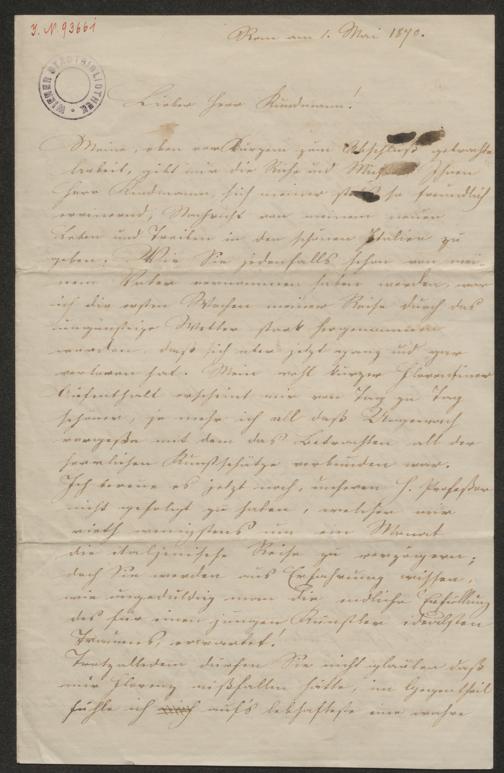 J. N. 93661
WIENER STADTBIBLIOTHEK
Rom am 1. Mai 1870.
Lieber Herr Kundmann!
Meine, eben vor Kurzem zum Abschluß gebrachte
Arbeit, gibt mir die Ruhe und Ihnen
Herr Kundmann, sich meiner so freundlich
erinnernd, Nachricht von meinem neuen
Leben und Treiben in dem schönen Italien zu
geben. Wie Sie jedenfalls schon von mei-
nem Vater vernommen haben werden, war
ich die ersten Wochen meiner Reise durch das
ungünstige Wetter stark hergenommen
worden, daß sich aber jetzt ganz und gar
verloren hat. Mein wohl kurzer Florentiner
Aufenthalt erscheint mir von Tag zu Tag
schöner, je mehr ich all daß Ungemach
vergeße mit dem das Betrachten all der
herrlichen Kunstschätze verbunden war.
Ich bereue es jetzt noch, unseren H. Profeßor
nicht gefolgt zu haben, welcher mir
rieth wenigstens um ein Monat
die italienische Reise zu verzögern;
doch Sie werden aus Erfahrung wissen,
wie ungeduldig man die endliche Erfüllung
des für einen jungen Künstler idealsten
Traumes, erwartet!
Trotzalledem dürfen Sie nicht glauben daß
mir Florenz mißfallen hätte, im Gegentheil
fühle ich auf's lebhafteste eine wahre